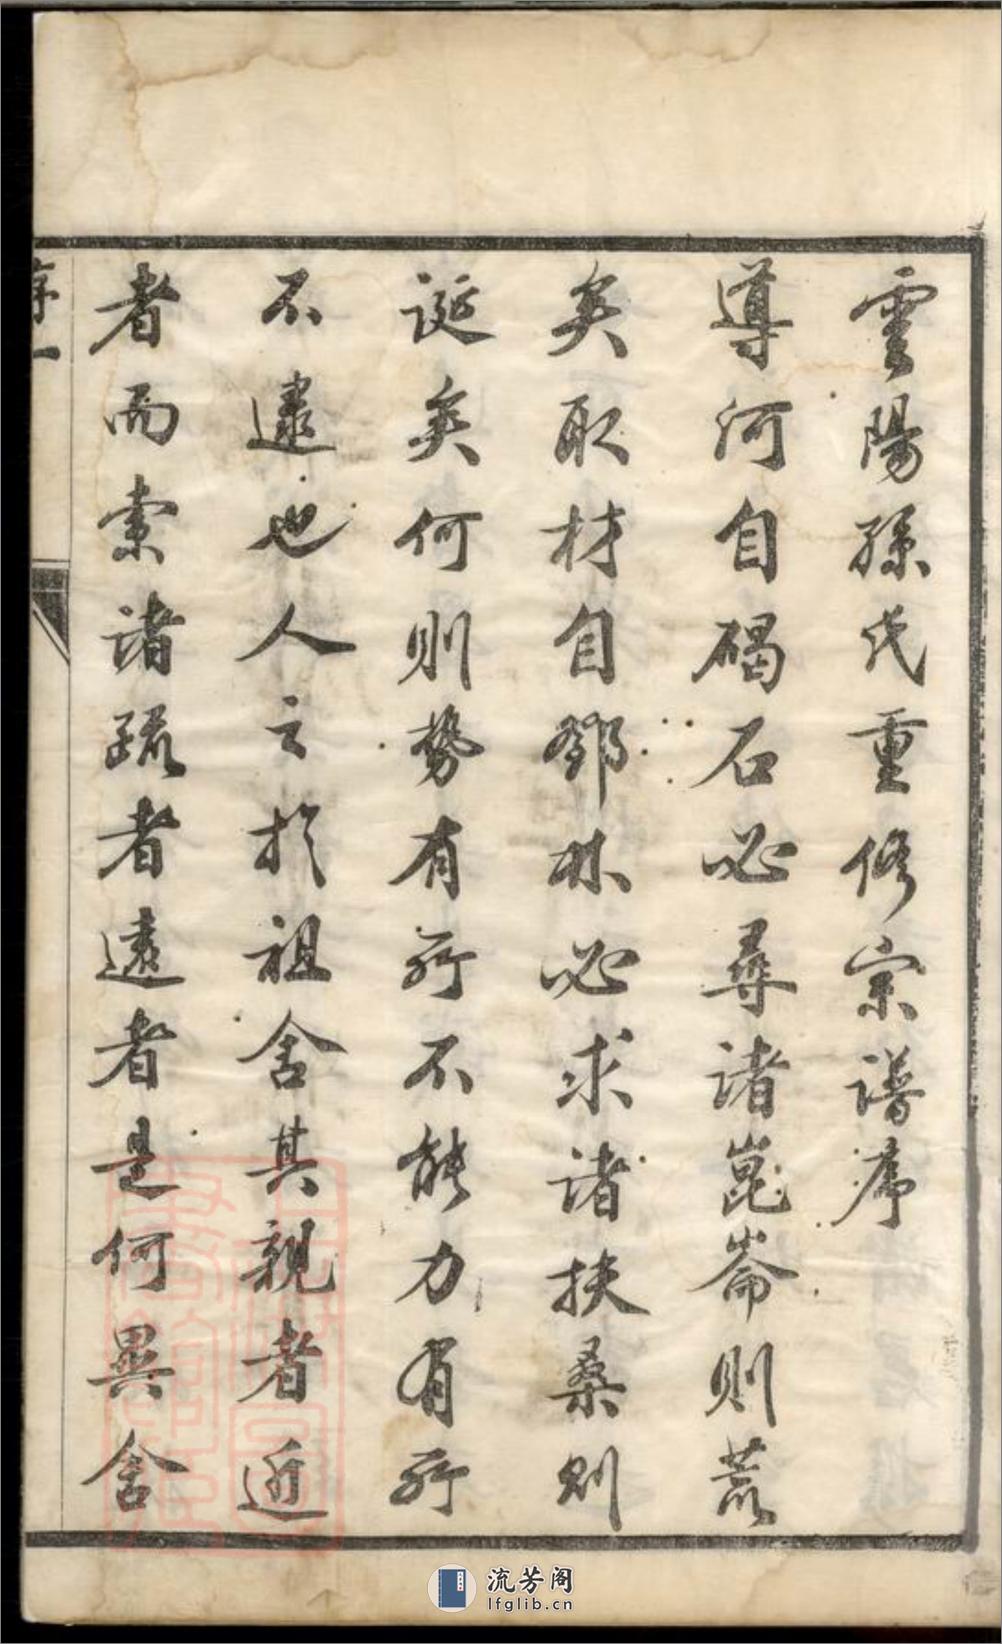 雲陽孫氏重修宗譜序
導河自碣石必尋諸崑崙則荒
矣取材自鄧林必求諸扶桑則
誕矣何則勢有所不能力有所
不逮也人之於祖舍其親者近
者而索諸疏者遠者是何異舍
序一
流芳阁
lfglib.cn